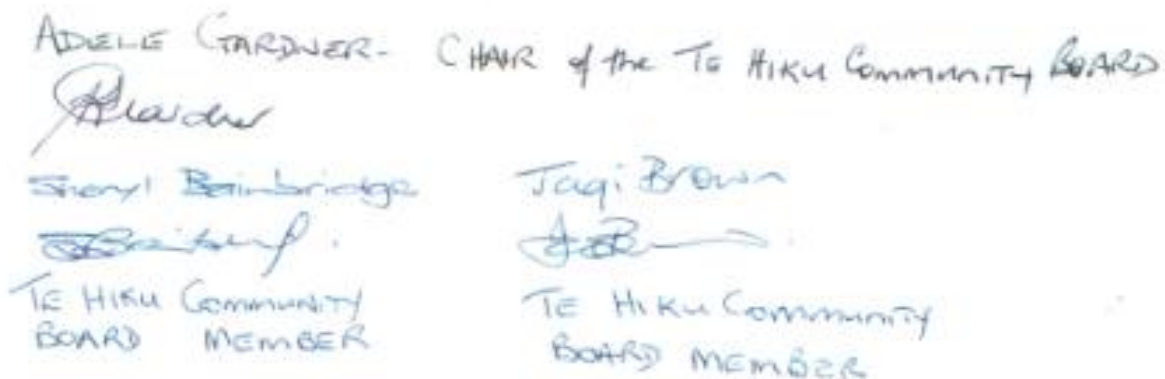 ADELE GARDNER - CHAIR of the TE HIKU COMMUNITY BOARD
Sheryl Bainbridge
TE HIKU COMMUNITY
BOARD MEMBER
Jaqi Brown
TE HIKU COMMUNITY
BOARD MEMBER